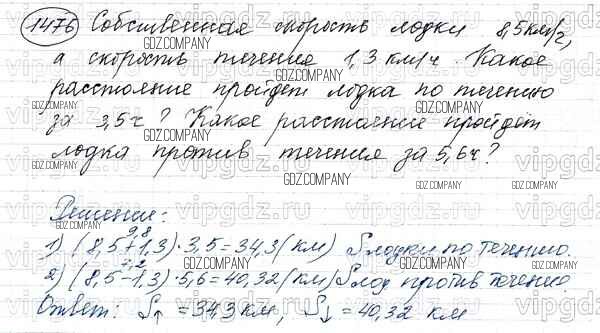 1476 Собственная скорость лодки 8,5 км/ч,
а скорость течения 1,3 км/ч. Какое
расстояние пройдет лодка по течению
за 3,5 ч? Какое расстояние пройдёт
лодка против течения за 5,6 ч?
Решение:
9,8
1) (8,5+1,3)·3,5=34,3 (км) S лодки по течению.
7,2
2) (8,5-1,3)·5,6=40,32 (км) S лод против течению
Ответ: S↑ = 34,3 км, S↓ = 40,32 км
GDZ.COMPANY
vipgdz